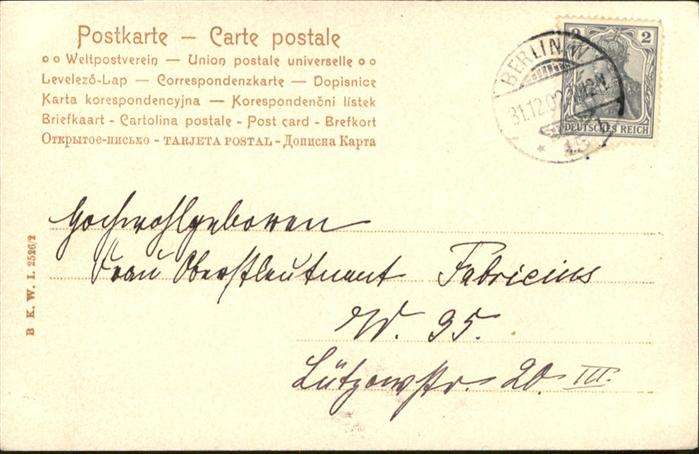 Postkarte — Carte postale
Weltpostverein — Union postale universelle
Levelező-Lap — Correspondenzkarte — Dopisnice
Karta korespondencyjna — Korespondenční lístek
Briefkaart - Cartolina postale - Post card - Brefkort
Открытое-письмо - TARJETA POSTAL - Дописна Карта
BERLIN W
31.12.02
2
DEUTSCHES REICH
Hochwohlgeboren
Frau Oberstleutnant Fabricius
W. 35.
Lützowstr. 20 III.
B. K. W. I. 2526/2